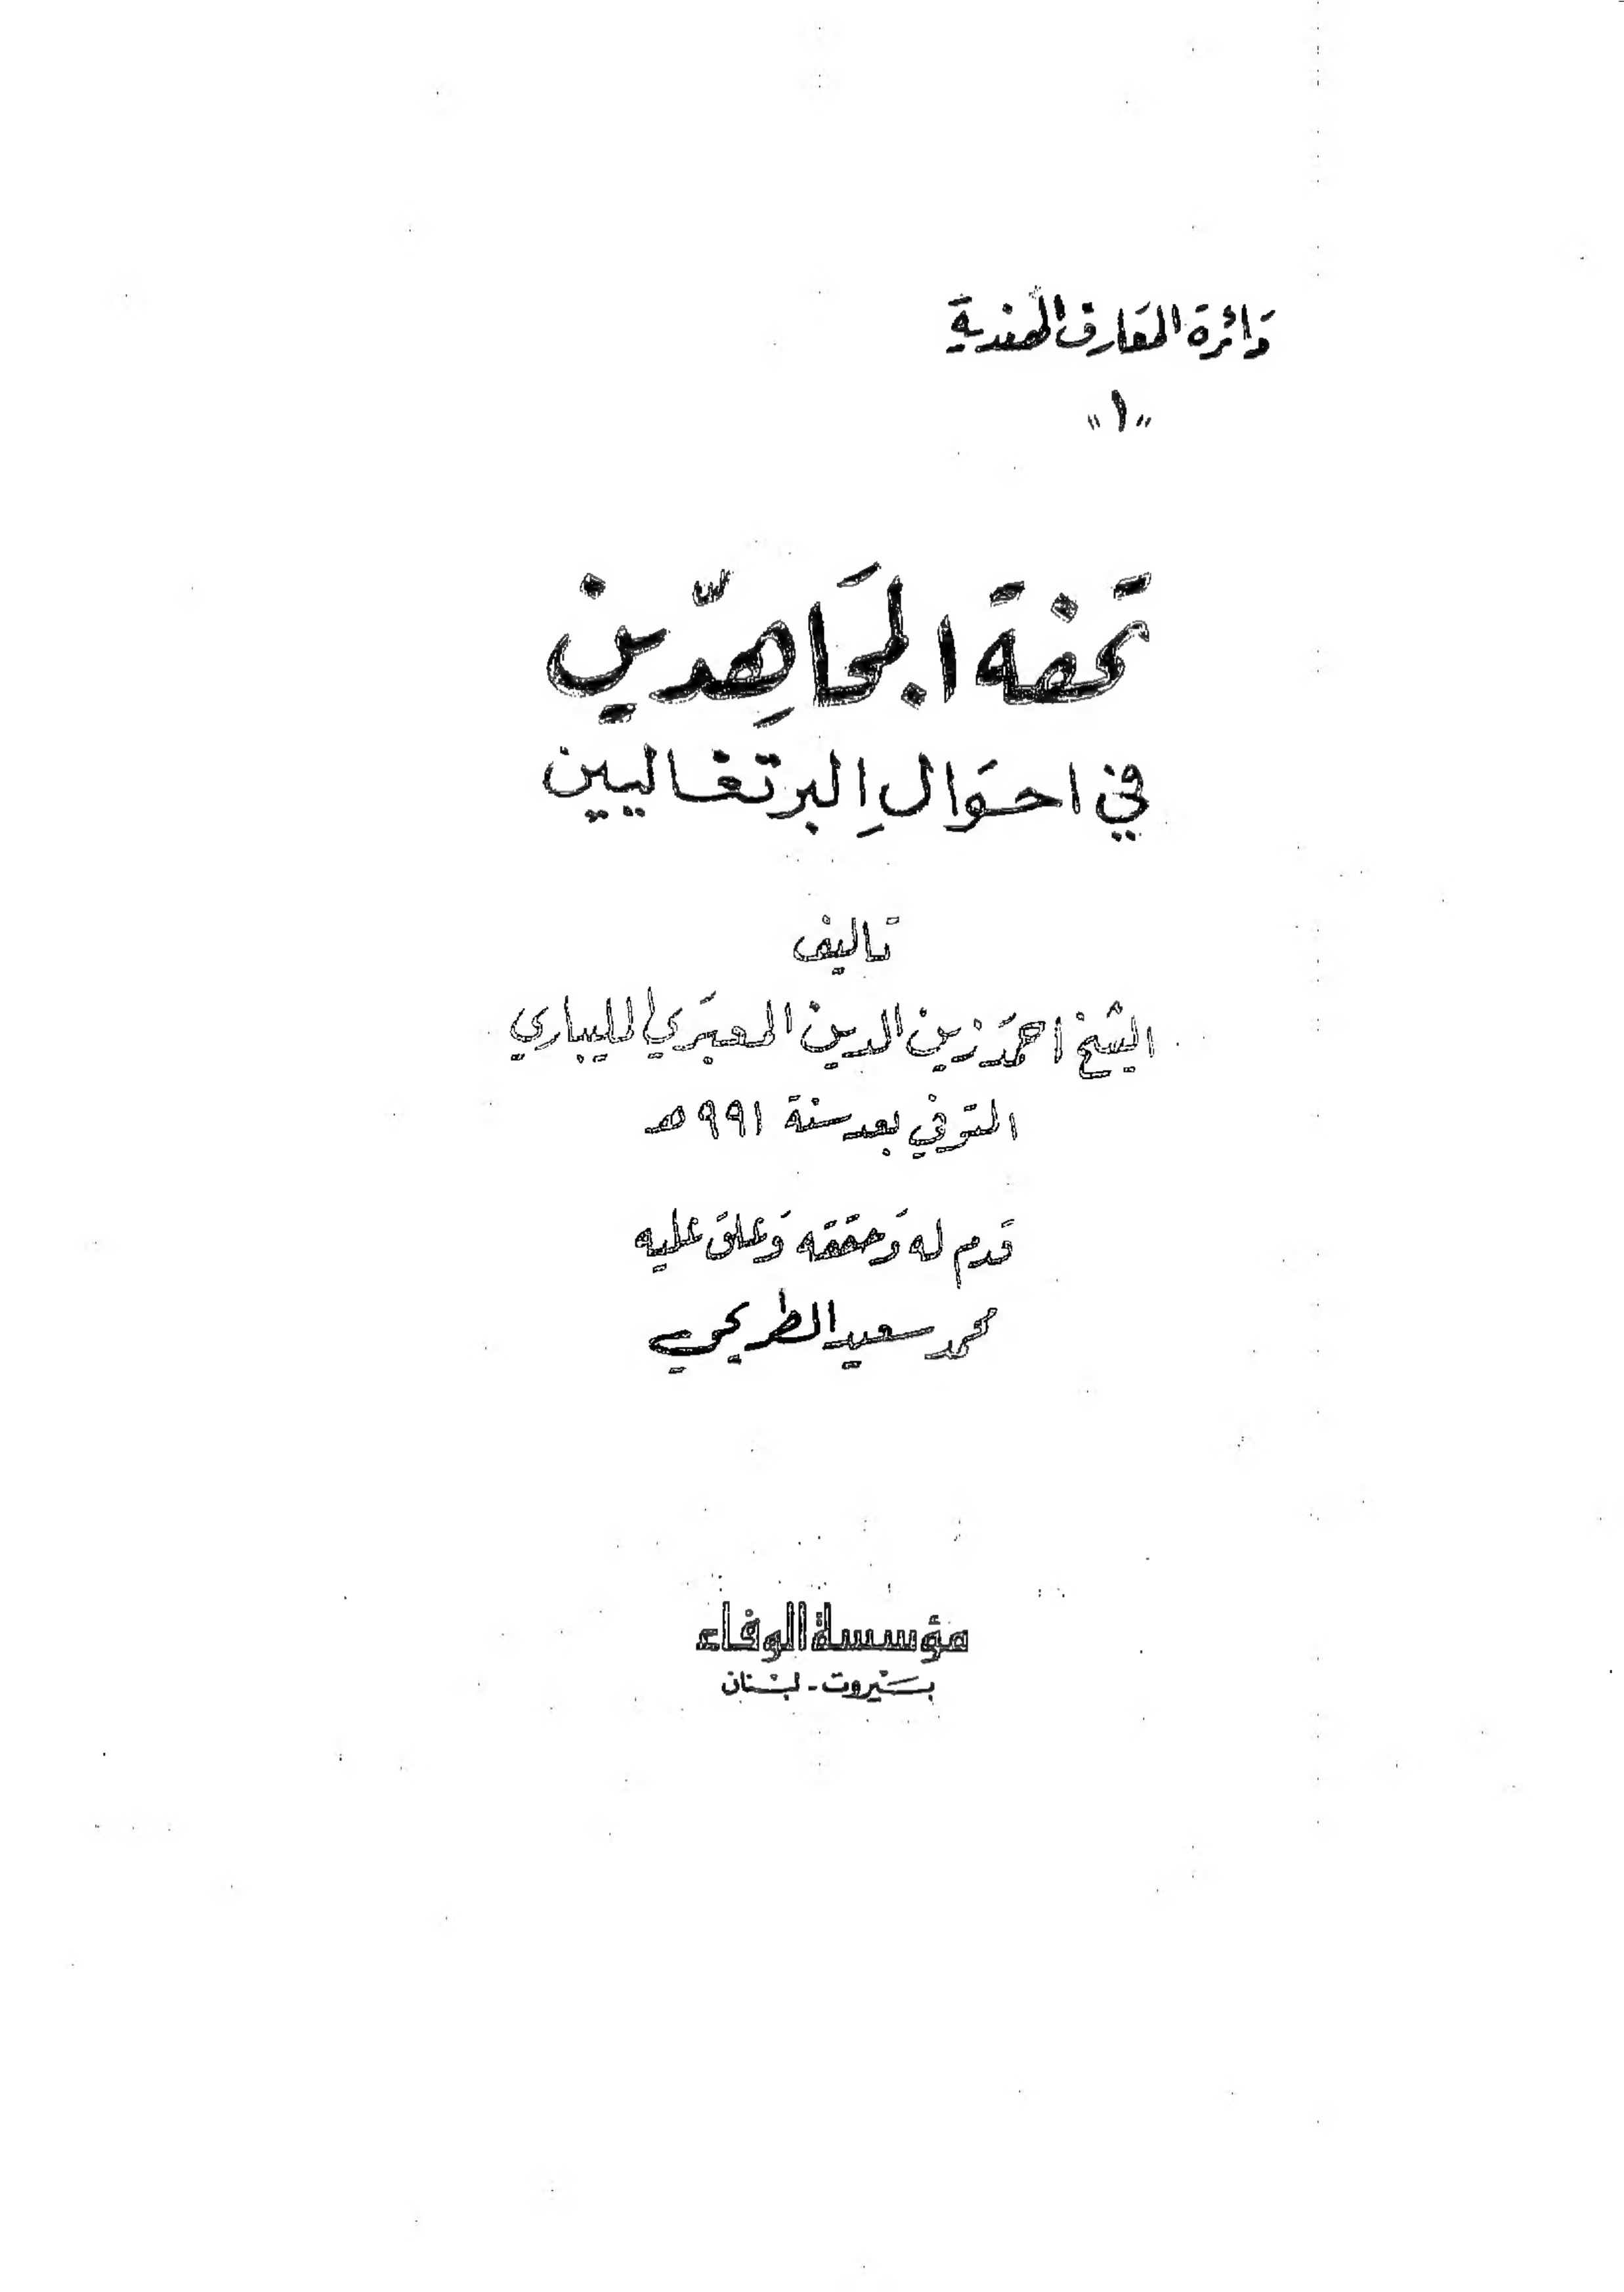 دَائرَة المعَارف الهندية
"١"
تحفة المجَاهِدّين
في احوَالِ البرتغاليين
تاليف
الشيخ احمَد زين الدين المعبَري المليباري
المتوفي بعد سنة ٩٩١ هـ
قدم له وَحققه وَعلق عليه
محمد سعيد الطريحي
مؤسسة الوفاء
بَيروت - لبنان